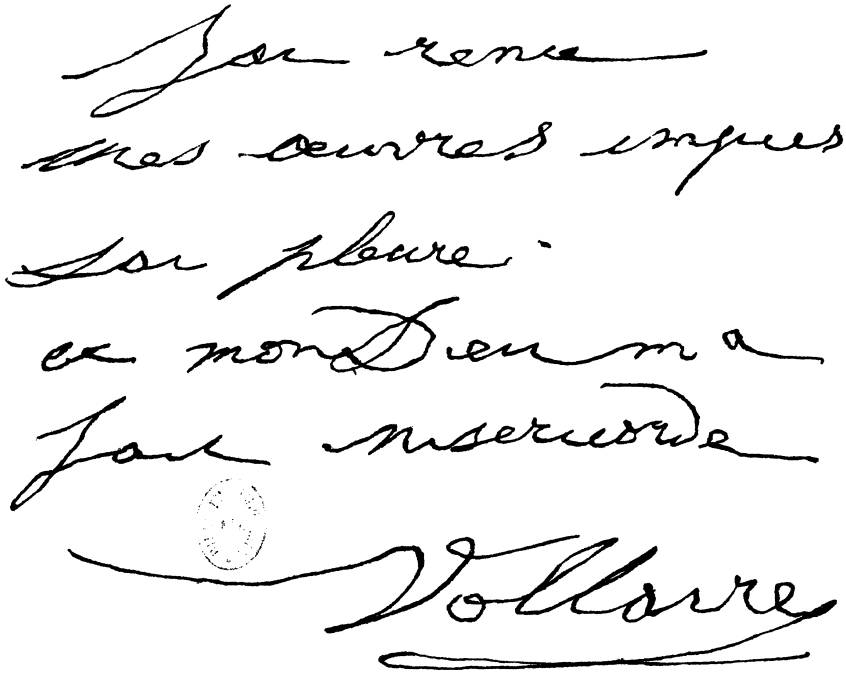 Jai renie
mes œuvres impies
Jai pleure.
et mon Dieu m a
fait misericorde
Voltaire